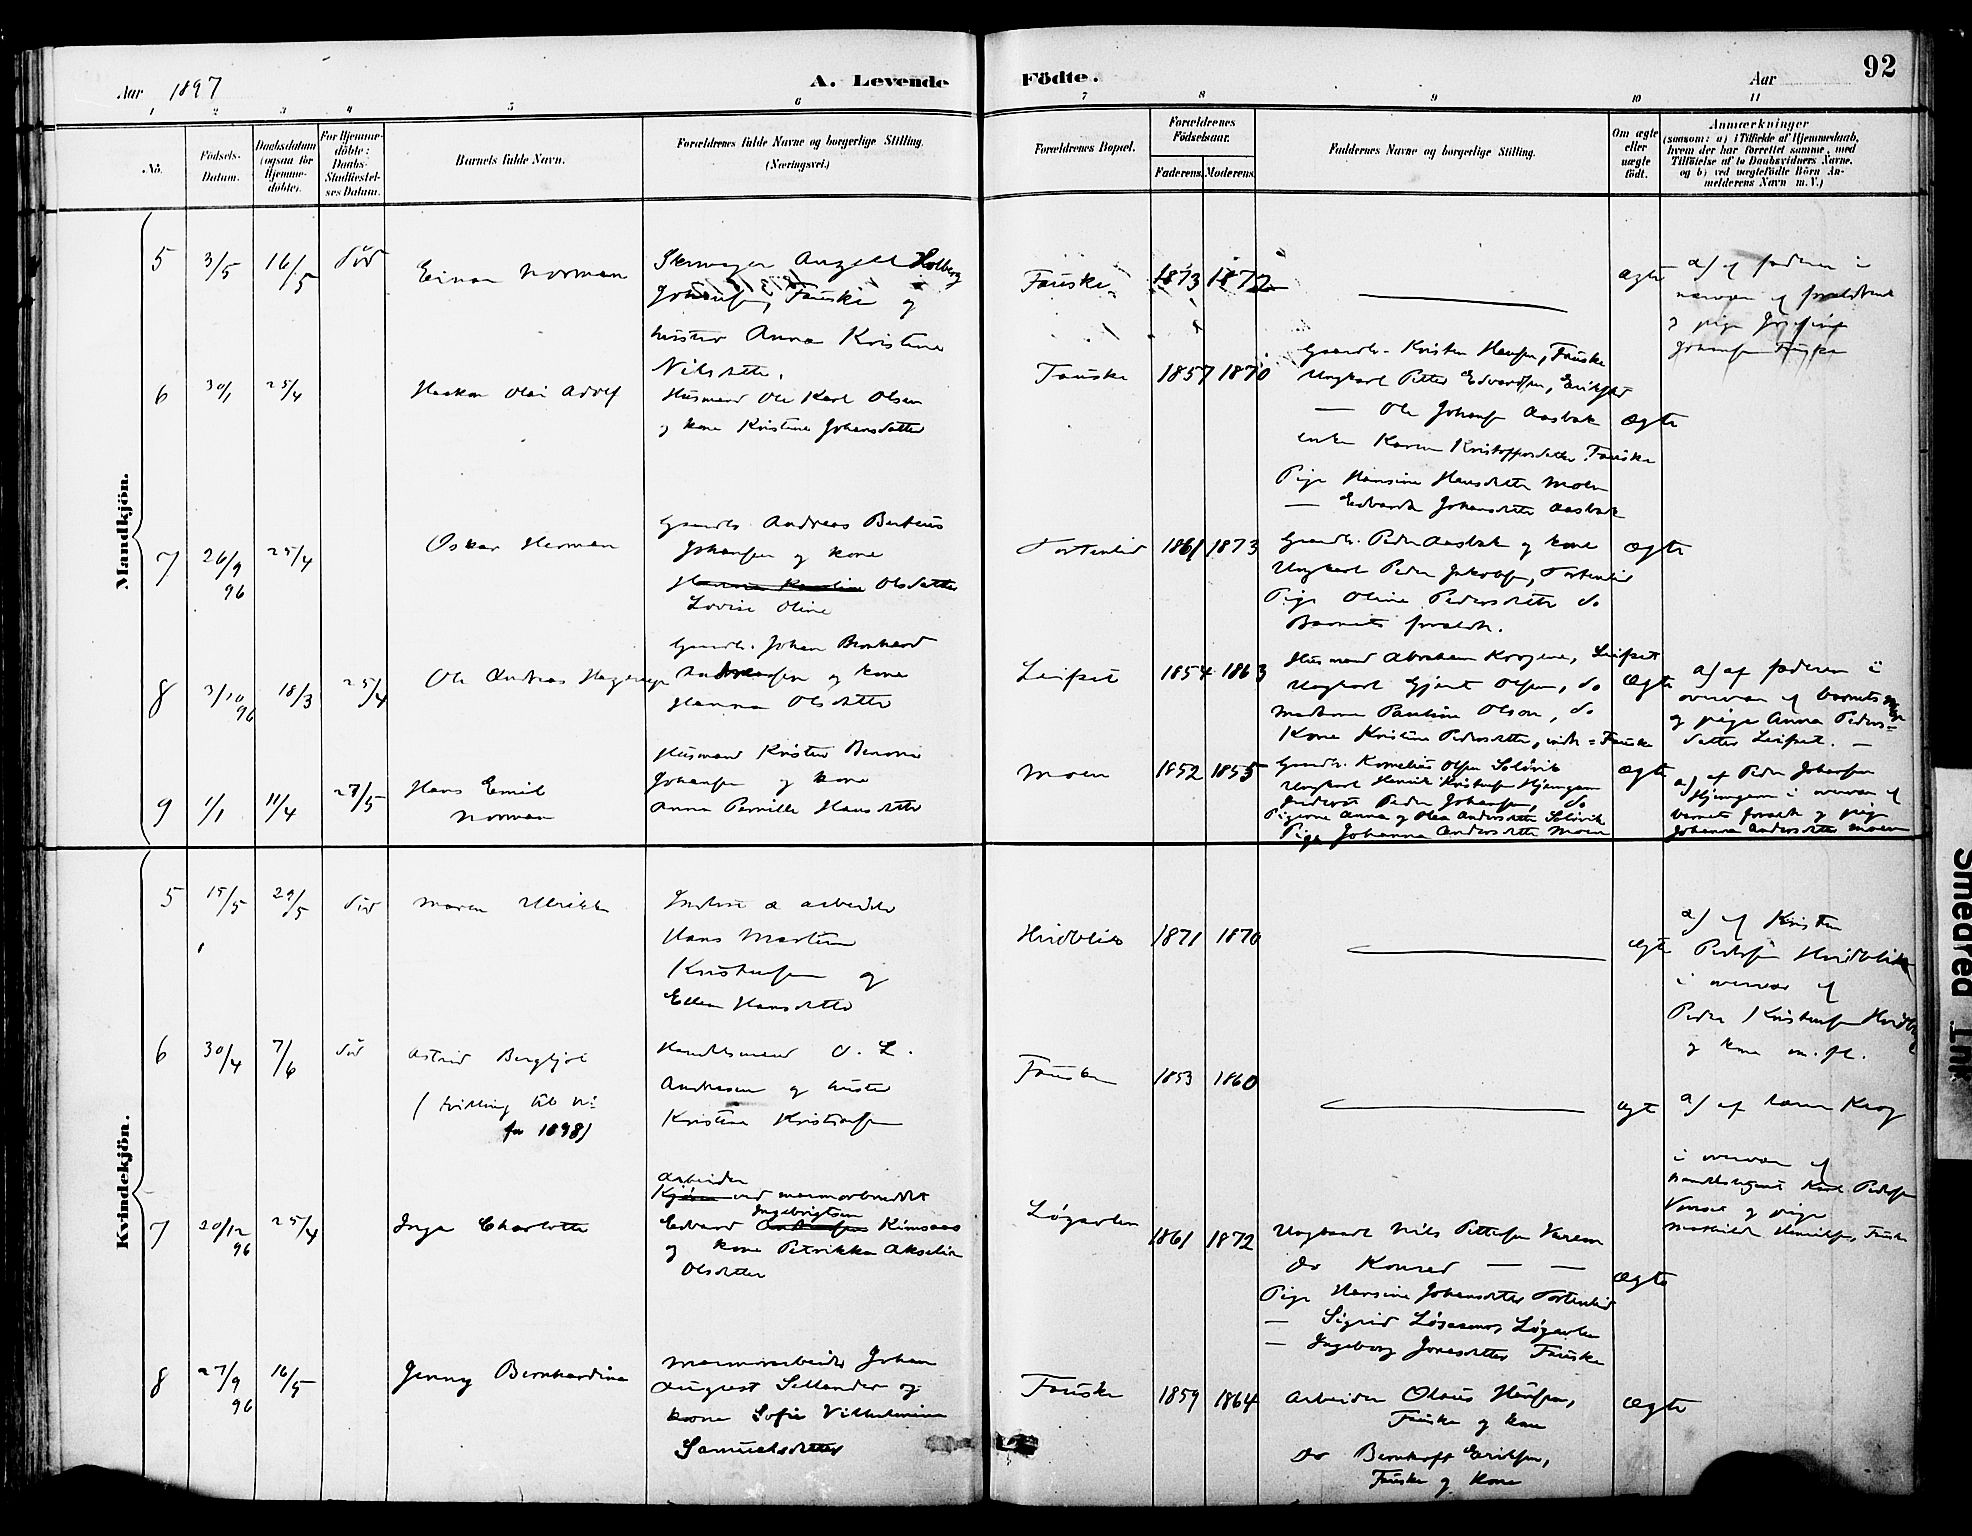 Aar 1897
A. Levende
Födte.
Aar
92
1 2 3 4 5 6 7 8 9 10 11
No.
Födsels-
Datum.
Daabsdatum
(ogsaa for
Hjemme-
döbte).
For Hjemme-
döbte:
Daabs-
Stadfæstel-
ses Datum.
Barnets fulde Navn.
Forældrenes fulde Navne og borgerlige Stilling.
(Næringsvei.)
Forældrenes Bopæl.
Forældrenes
Födselsaar.
Faderens. Moderens.
Faddernes Navne og borgerlige Stilling.
Om ægte
eller
uægte
födt.
Anmærkninger
(saasom: a) i Tilfælde af Hjemmedaab,
hvem der har forrettet samme, med
Tilföielse af to Daabsvidners Navne,
og b) ved uægtefödte Börn An-
melderens Navn m. V.)
Mandkjön.
5 3/5 16/5 död
Einar Norman
Angell Holberg
Johansen, Fauske og
hustru Anna Kristine
Nilsdatter.
Fauske
1873 1872
ægte
a) af faderen i
nærvær af forældrene
og pige Josefine
Johansen Fauske
6 30/1 25/4
Haakon Olai Adolf
Husmand Ole Karl Olsen
og kone Kristine Johansdatter
Fauske
1857 1870
Gaardbr. Kristen Hansen, Fauske
Ungkarl Petter Edvardsen, Erikstad
— Ole Johansen Aasbak
enke Karen Kristoffersdatter Fauske
Pige Hansine Hansdatter Moen
— Edvarda Johansdatter Aasbak
Ægte
7 26/9 96 25/4
Oskar Herman
Gaardbr. Andreas Berteus
Johansen og kone
Hansine Karoline Olsdatter
Lovise Oline
Tortenlid
1861 1873
Gaardbr. Peder Aasbak og kone
Ungkarl Peder Jakobsen, Tortenlid
Pige Oline Pedersdatter do
Barnets foreldre.
Ægte
8 3/10 96 18/3 25/4
Ole Andreas
Gaardbr. Johan Bernhard
Andreassen og kone
Hanna Olsdatter
Leifset
1854 1863
Husmand Abraham Leifset
Ungkarl Gjert Olsen, do
Madame Pauline Olsen, do
Kone Kristine Pedersdatter, Fauske
Ægte
a) af faderen i
overvær af barnets
og pige Anna Peders-
datter Leifset. —
9 1/1 11/4 27/5
Hans Emil
Norman
Husmand Kristen Benoni
Johansen og kone
Anna Pernille Hansdatter
Moen
1852 1855
Gaardbr. Kornelius Olsen Solvik
Ungkarl Henrik Kristensen Hjemgam
Inderst Peder Johansen, do
Pigerne Anna og Olea Andersdatter Solvik
Pige Johanna Andersdatter Moen
Ægte
a) af Peder Johansen
Hjemgam i overvær af
barnets foreldre og pige
Johanna Andersdatter Moen
Kvindekjön.
5 15/5 29/5 död
Maren Ulrikke
Inderst & arbeider
Hans Martin
Kristensen og
Ellen Hansdatter
Hvidblik
1871 1870
ægte
a) af Kristen
Pedersen Hvidblik
i overvær af
Peder Kristensen
og kone m. fl.
6 30/4 7/6 död
Astrid Bergljot
(tvilling til No
for 1898)
Handelsmand O. L.
Andreasen og hustru
Kristine Kristiansen
Fauske
1853 1860
ægte
a) af Krog
i overvær af
handelsagent Karl Pedersen
og pige
Mathilde Henriksen, Fauske
7 20/12 96 25/4
Inga Charlotte
Arbeider
Kjører ved marmorbruddet
Ingebrigtsen
Edvard Andreassen Kimsaas
og kone Petrikke Akselia
Olsdatter
Løgavlen
1861 1872
Ungkarl Nils Pettersen
do Konrad — —
Pige Hansine Johansdatter Tortenlid
— Sigrid Løgavlen
— Ingeborg Jonasdatter Fauske
Ægte
8 27/9 96 16/5
Jenny Bernhardine
Marmorarbeider Johan
August Sellander og
kone Sofie Vilhelmine
Samuelsdatter
Fauske
1859 1864
Arbeider Olaus Hansen,
Fauske og kone
do Bernhoft Eriksen,
Fauske og kone
Ægte
Smedred Ink